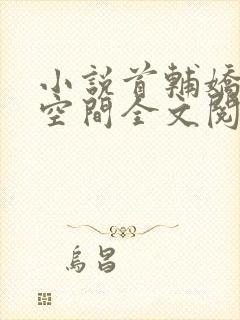 小說首輔嬌
空間全文閱
烏昌